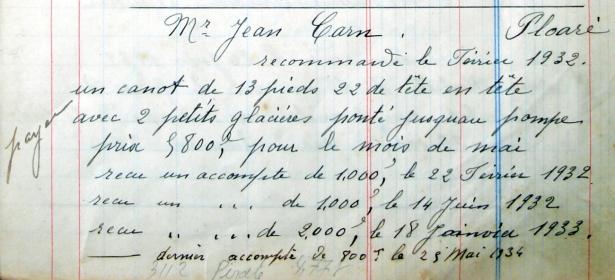 Mr Jean Carn . Ploaré
recommandé le Férrier 1932.
un canot de 13 pieds 22 de tête en tête
avec 2 petits glacières ponté jusquau pompe
payer
prix 5800f pour le mois de mai
recu un accompte de 1.000f, le 22 Férrier 1932
recu un ,, ,, de 1.000f, le 14 Juin 1932
recu ,, ,, ,, de 2.000f, le 18 Jainvier 1933.
— dernier accompte de 800f le 25 Mai 1934
3112